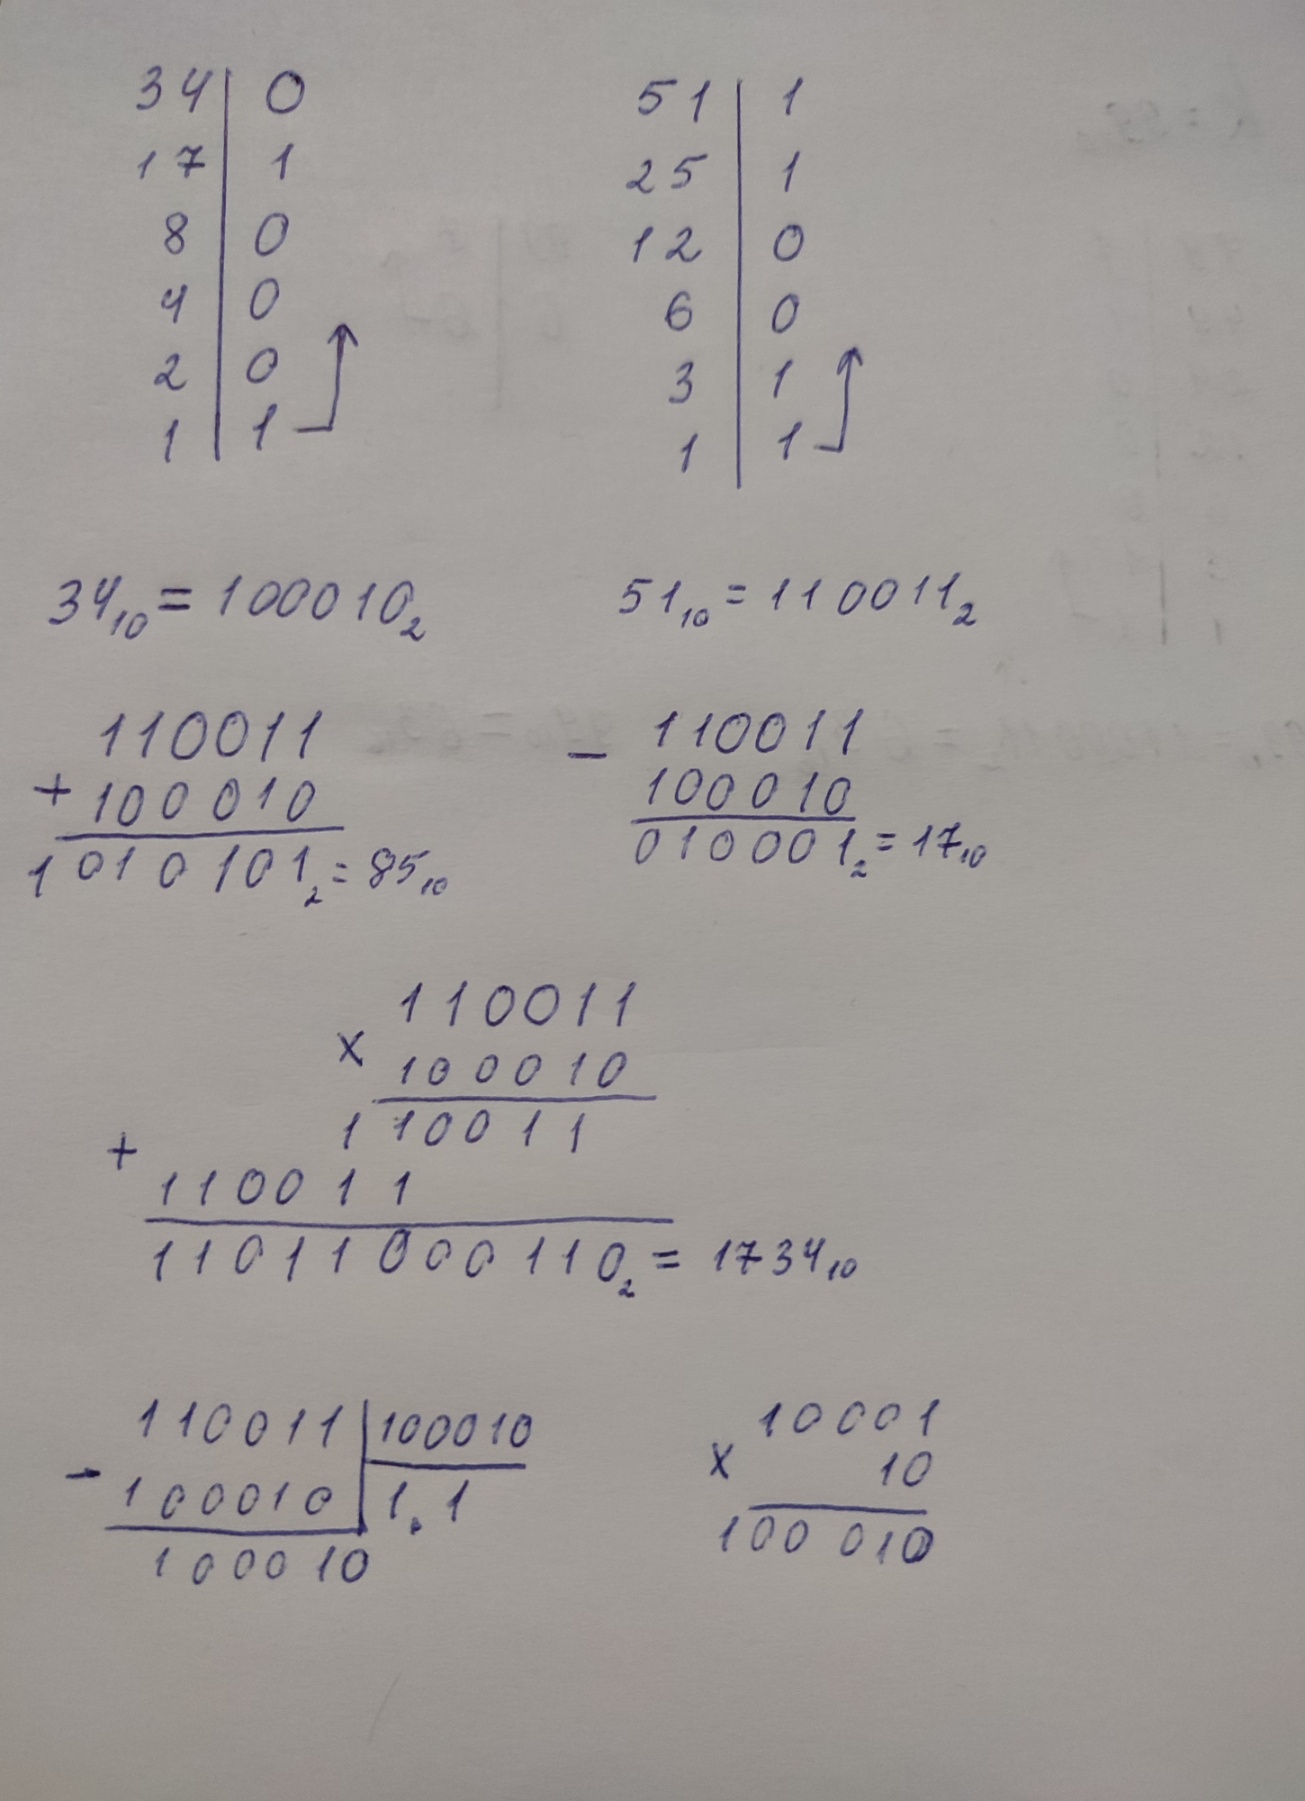 34 | 0
17 | 1
8 | 0
4 | 0
2 | 0
1 | 1
51 | 1
25 | 1
12 | 0
6 | 0
3 | 1
1 | 1
34₁₀ = 100010₂
51₁₀ = 110011₂
110011
+ 100010
1010101₂ = 85₁₀
- 110011
100010
010001₂ = 17₁₀
110011
x 100010
110011
+
110011
11011000110₂ = 1734₁₀
110011 | 100010
- 100010 | 1.1
100010
10001
x 10
100010